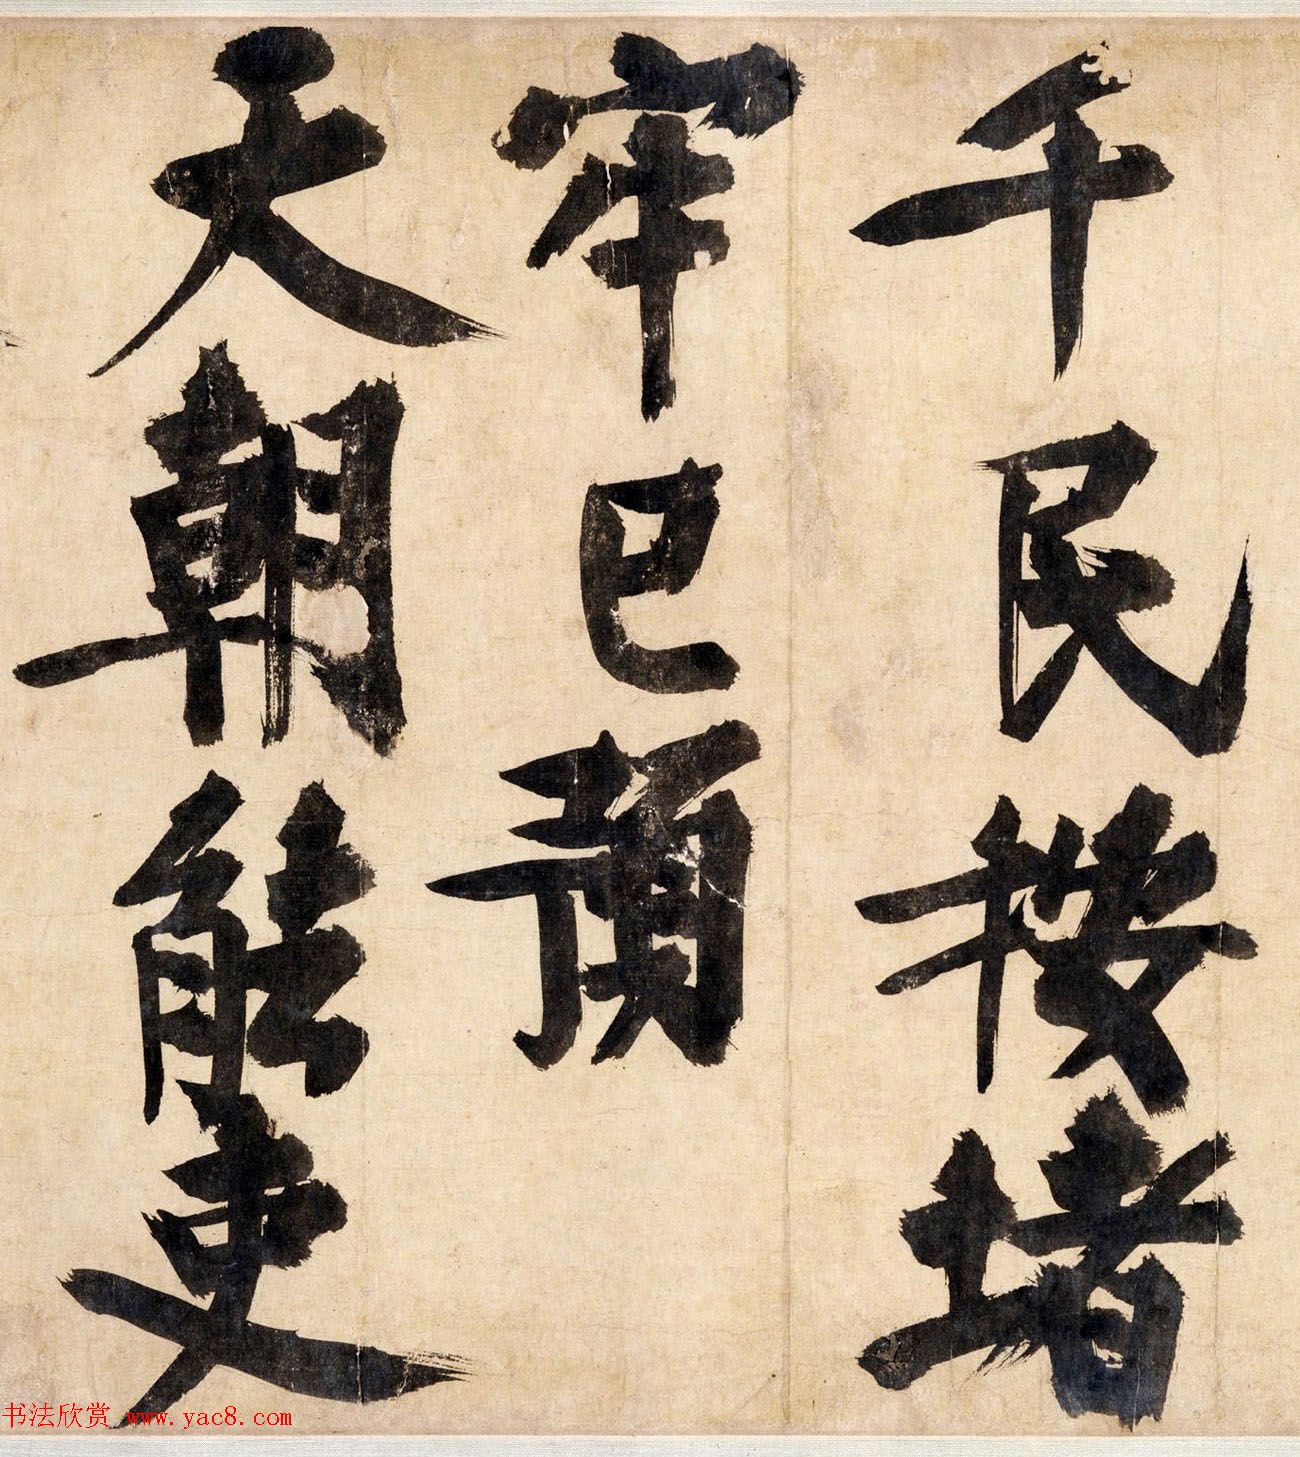 千民按堵
牢已預
天朝能吏
书法欣赏 www.yac8.com